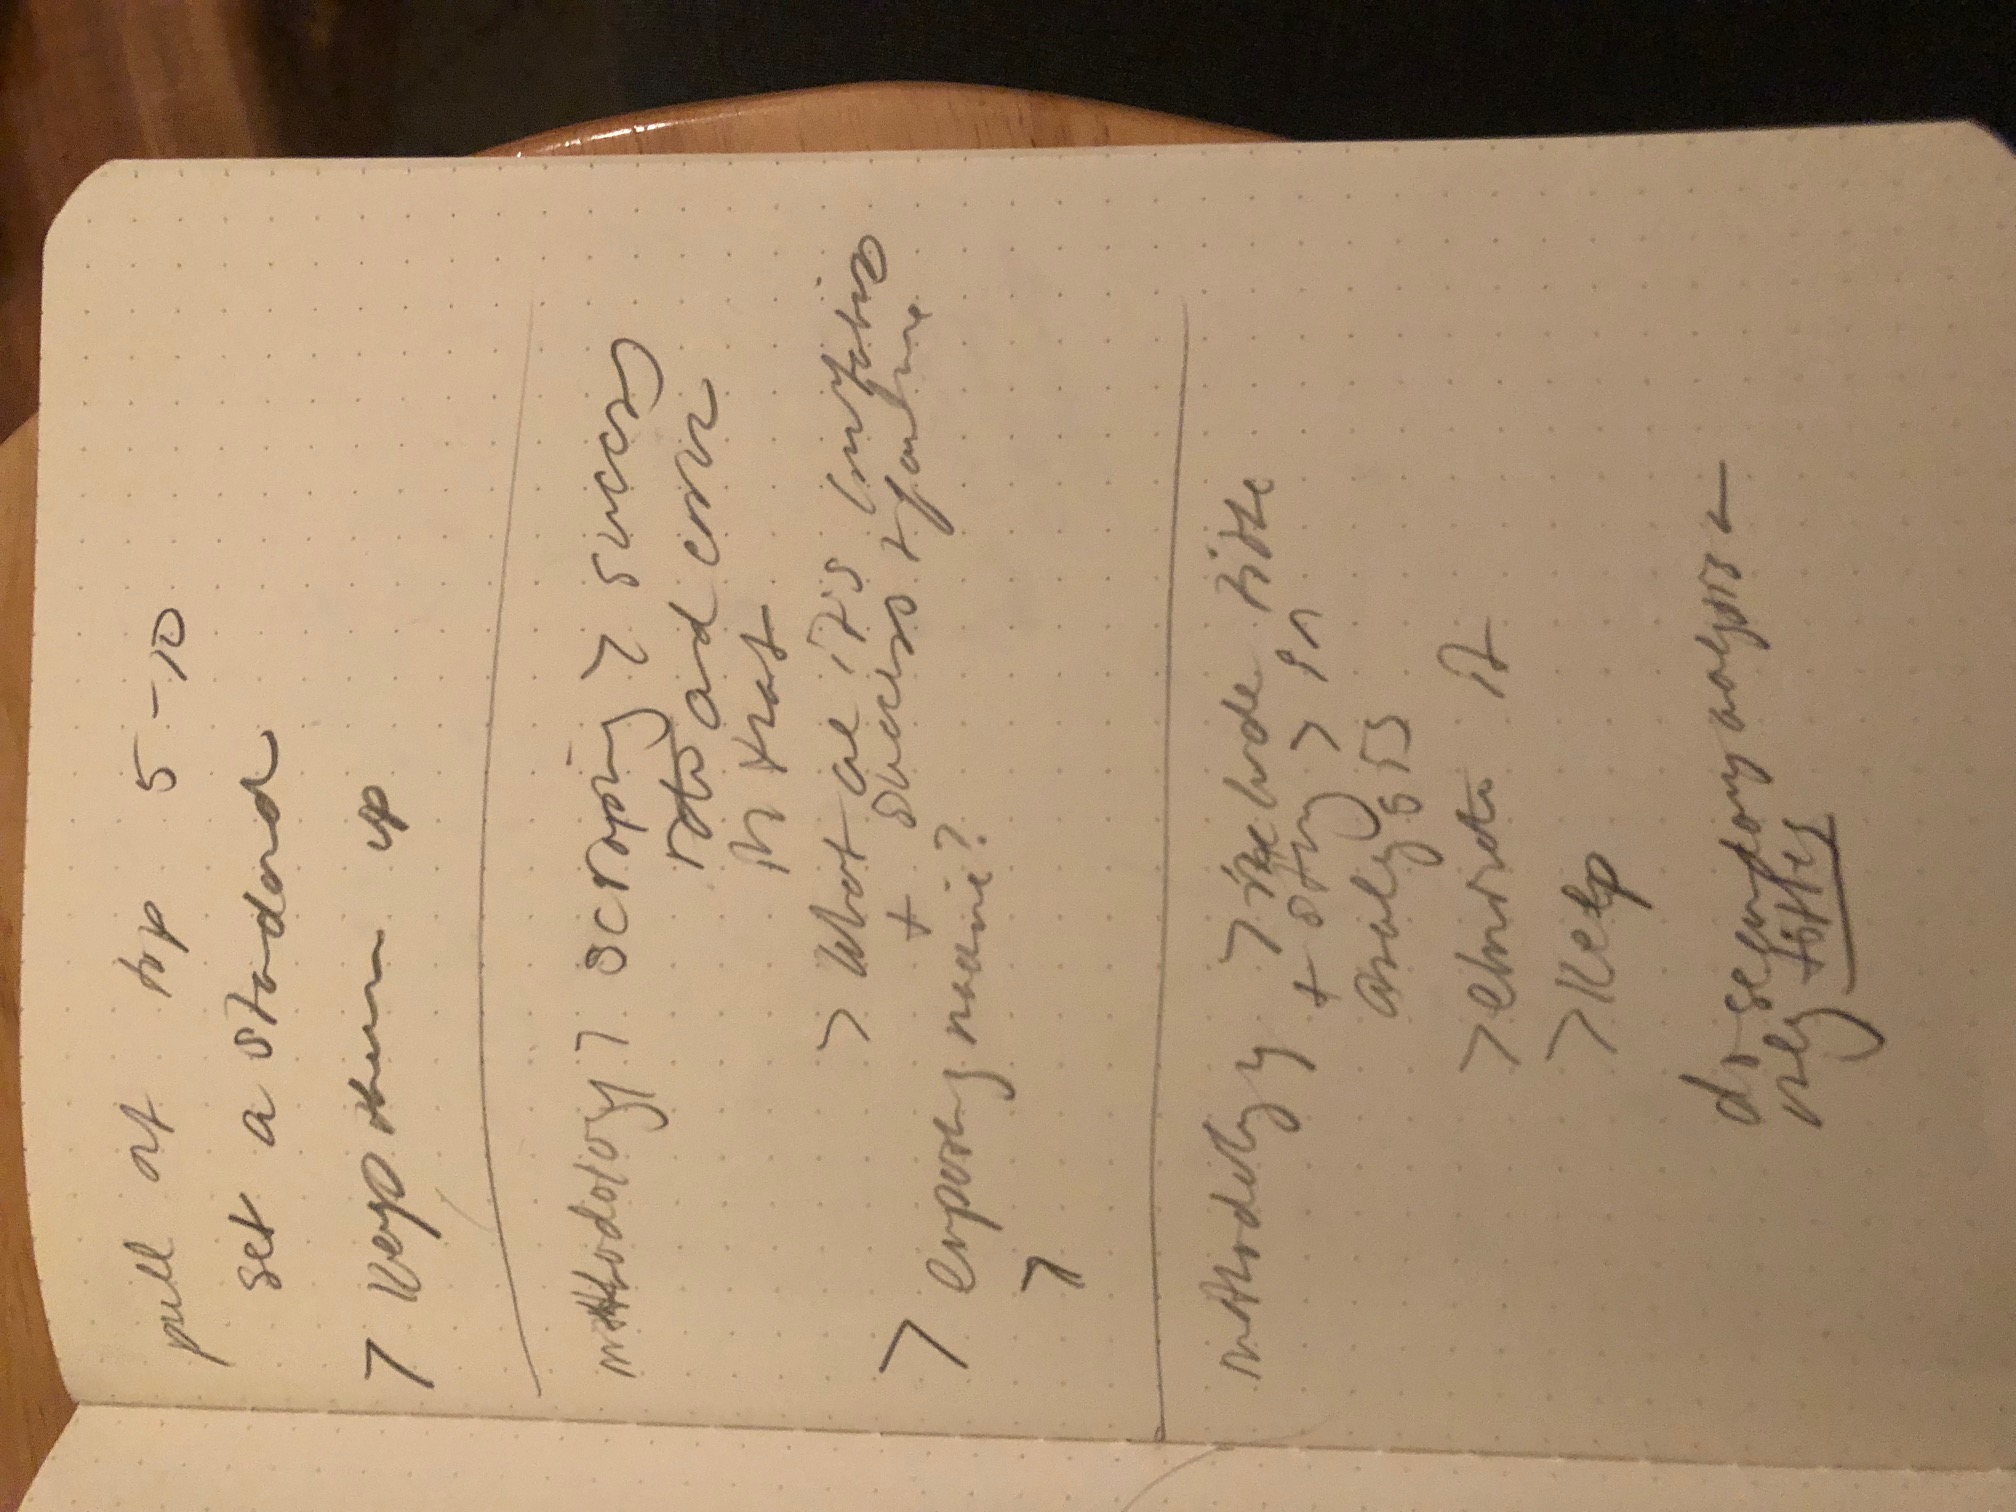 pull out top 5-10
set a standard
> keep them up
methodology > scraping > success
rate and error
in that
> what are it's limitations
+ success + failure
> exposing
>
methodology > include title
+ story > in
analysis
> eliminate it
> keep
do secondary analysis on
only titles